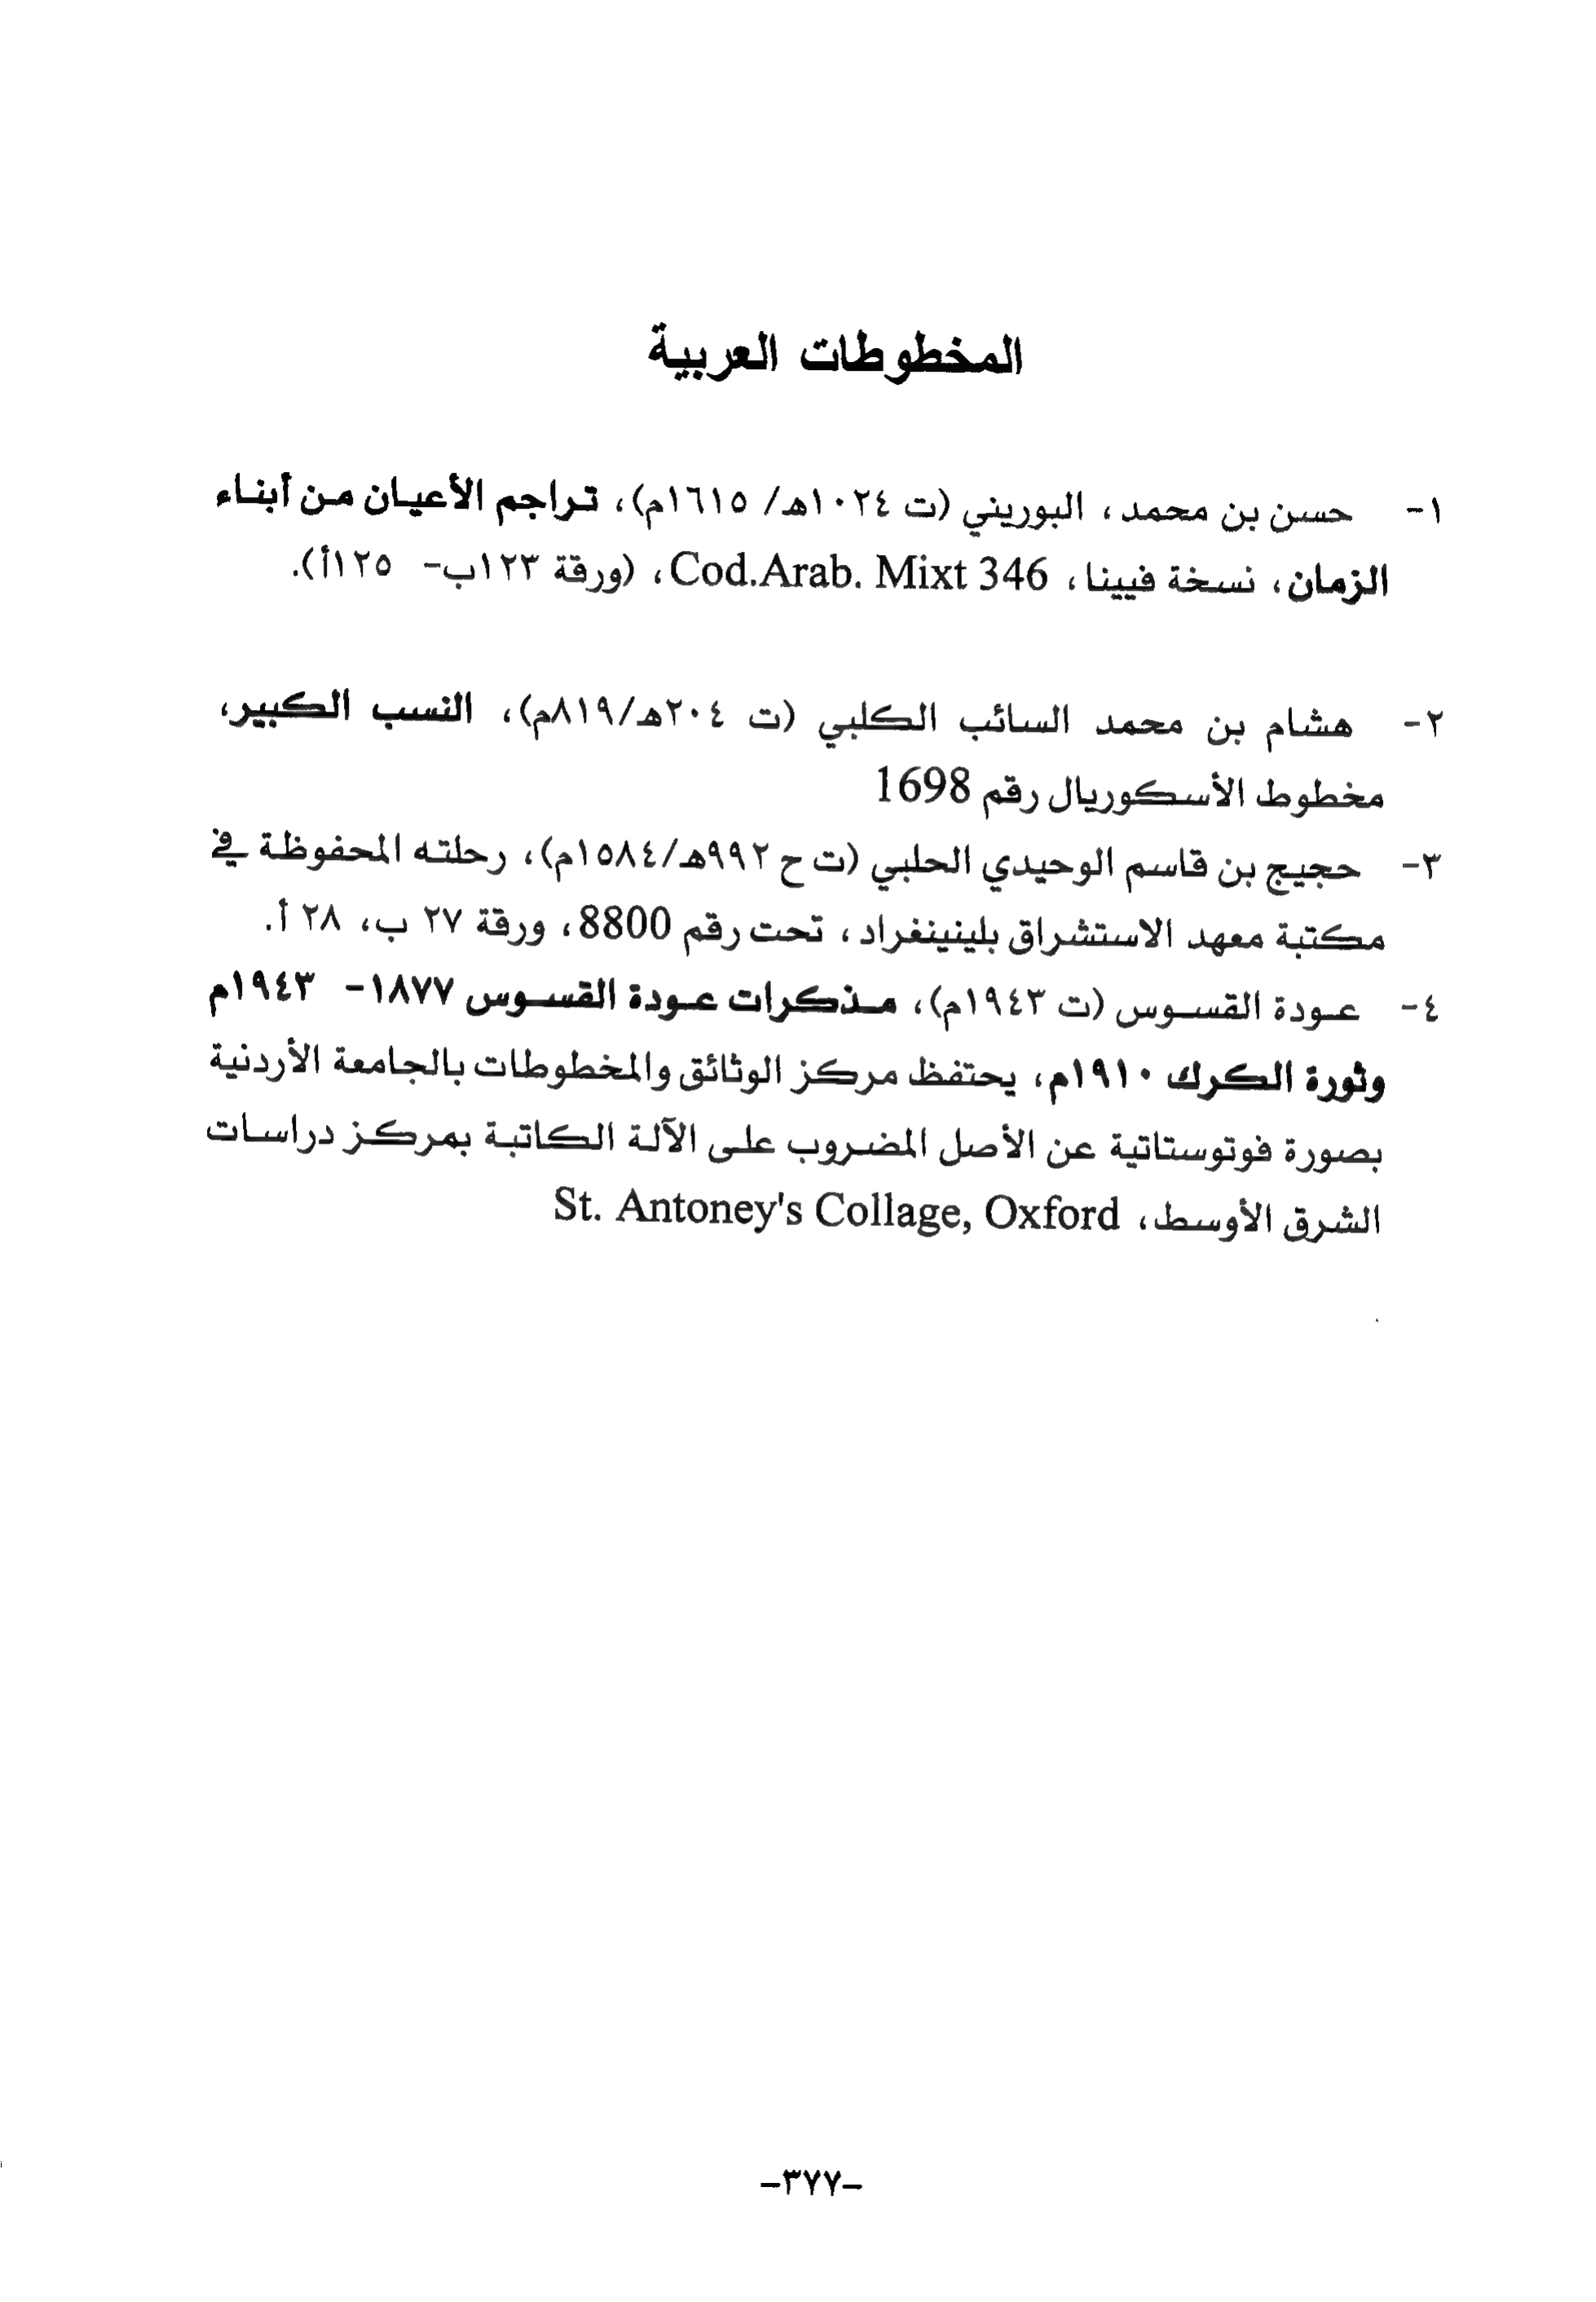 المخطوطات العربية
١- حسن بن محمد، البوريني (ت ١٠٢٤هـ/ ١٦١٥م)، تراجم الأعيان من أبناء
الزمان، نسخة فيينا، Cod.Arab. Mixt 346، (ورقة ١٢٣ب- ١٢٥أ).
٢- هشام بن محمد السائب الكلبي (ت ٢٠٤هـ/٨١٩م)، النسب الكبير،
مخطوط الأسكوريال رقم 1698
٣- حجيج بن قاسم الوحيدي الحلبي (ت ح ٩٩٢هـ/١٥٨٤م)، رحلته المحفوظة في
مكتبة معهد الاستشراق بلينينغراد، تحت رقم 8800، ورقة ٢٧ ب، ٢٨ أ.
٤- عودة القسوس (ت ١٩٤٣م)، مذكرات عودة القسوس ١٨٧٧- ١٩٤٣م
وثورة الكرك ١٩١٠م، يحتفظ مركز الوثائق والمخطوطات بالجامعة الأردنية
بصورة فوتوستاتية عن الأصل المضروب على الآلة الكاتبة بمركز دراسات
الشرق الأوسط، St. Antoney's Collage, Oxford
-٣٧٧-